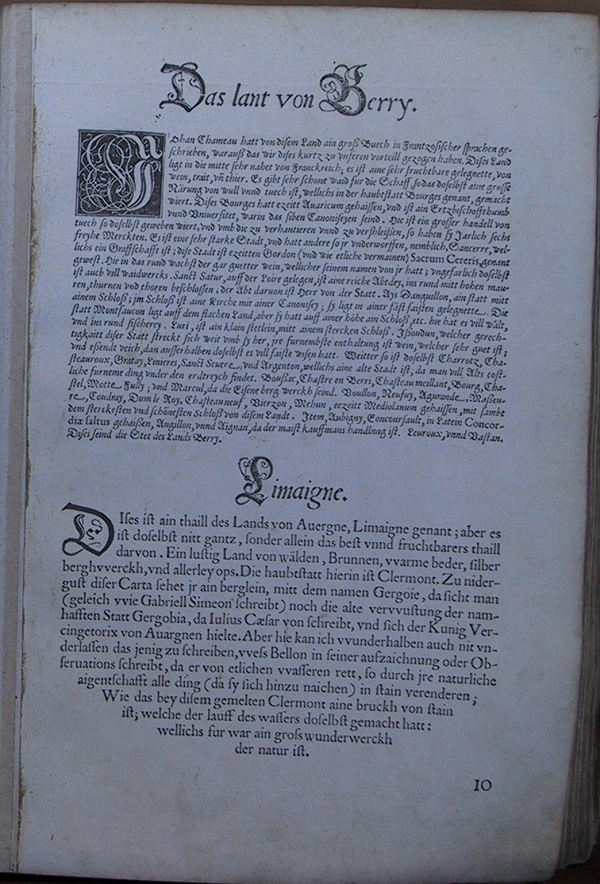 Das lant von Berry.
Johan Chameau hatt von disem Land ain groß Buech in Frantzosischer sprachen ge-
schrieben, warauß das wir dises kurtz zu unseren vorteill gezogen haben. Dises Land
ligt in die mitte sehr nahet von Franckreich; es ist aine sehr fruchtbare gelegnette, von
wein, trait, vñ thier. Es gibt sehr schone waid fur die Schaff, so das doselbst aine grosse
Närung von wull vnnd tuech ist, wellichs in der haubtstatt Bourges genant, gemacht
wiert. Dises Bourges hatt ezeitt Auaricum gehaissen, vnd ist ain Ertzbischoffthumb
vnnd Vniuersitet, warin das siben Canonisyen seind. Die ist ein grosser handell von
tuech so doselbst geweben wiert, vnd vmb die zu verhantieren vnnd zu verschleissen, so haben sy Jarlich sechs
freyhe Merckten. Es ist eine sehr starke Stadt, vnd hatt andere so jr vnderworffen, nemblich, Sancerre, wel-
lichs ein Graffschafft ist; dise Stadt ist ezeitten Gordon (vnd wie etliche vermainen) Sacrum Cereris, genant
gewest. Hie in das rund wachst der gar guetter wein, wellicher seinem namen von jr hatt; vngefarlich doselbst
ist auch vill waidwercks. Sanct Satur, auff der Loire gelegen, ist aine reiche Abtey, ins rund mitt hohen mau-
ren, thurnen vnd thoren beschlossen: der Abt daruon ist Herr von der Statt. Ays Danguillon, ain statt mitt
ainem Schloß; jm Schloß ist aine Kirche mit ainer Canonisey; sy ligt in ainer fäst faisten gelegnette. Die
statt Montfaucon ligt auff dem flachen Land, aber sy hatt auff ainer höhe ain Schloß, etc. hie hat es vill wält,
vnd ins rund fischerey. Luri, ist ain klain stetlein, mitt ainem stercken Schloß. Jssoudun, welcher gerech-
tigkaitt diser Statt streckt sich weit vmb sy her, jre furnembste enthaltung ist wein, welcher sehr guet ist;
vnd essend veich, dan ausserhalben doselbst es vill faiste wisen hatt. Weitter so ist doselbst Charrotz, Cha-
steauroux, Grasay, Linieres, Sanct Seuere, vnd Argenton, wellichs aine alte Stadt ist, da man vill Alte cost-
liche furneme ding vnder den erdtreych findet. Boussac, Chastre en Berri, Chasteau meillant, Bourg, Cha-
stel, Motte Fully; vnd Mareul, da die Eisene berg werckh seind. Voullon, Neufuy, Agurande, Maseu-
re, Coudray, Dum le Roy, Chasteauneuf, Vierzon, Mehun, ezeitt Mediolanum gehaissen, mit sambt
dem sterckesten vnd schönesten Schloß von disem Landt. Jtem, Aubigny, Concoursault, in Latein Concor-
diæ saltus gehaissen, Angillon, vnnd Aignan, da der maist kauffmans handlung ist. Leuroux, vnnd Vastan.
Dises seind die Stet des Lands Berry.
Limaigne.
DIses ist ain thaill des Lands von Auergne, Limaigne genant; aber es
ist doselbst nitt gantz, sonder allein das best vnnd fruchtbarers thaill
darvon. Ein lustig Land von wälden, Brunnen, vvarme beder, silber
berghvverckh, vnd allerley ops. Die haubtstatt hierin ist Clermont. Zu nider-
gust diser Carta sehet jr ain berglein, mitt dem namen Gergoie, da sicht man
(geleich vvie Gabriell Simeon schreibt) noch die alte vervvustung der nam-
hafften Statt Gergobia, da Iulius Cæsar von schreibt, vnd sich der Kunig Ver-
cingetorix von Auargnen hielte. Aber hie kan ich vvunderhalben auch nit vn-
derlassen das jenig zu schreiben, vvess Bellon in seiner aufzaichnung oder Ob-
seruations schreibt, da er von etlichen vvasseren rett, so durch jre naturliche
aigentschafft alle ding (da sy sich hinzu naichen) in stain verenderen;
Wie das bey disem gemelten Clermont aine bruckh von stain
ist; welche der lauff des wassers doselbst gemacht hatt:
wellichs fur war ain gross wunderwerckh
der natur ist.
10